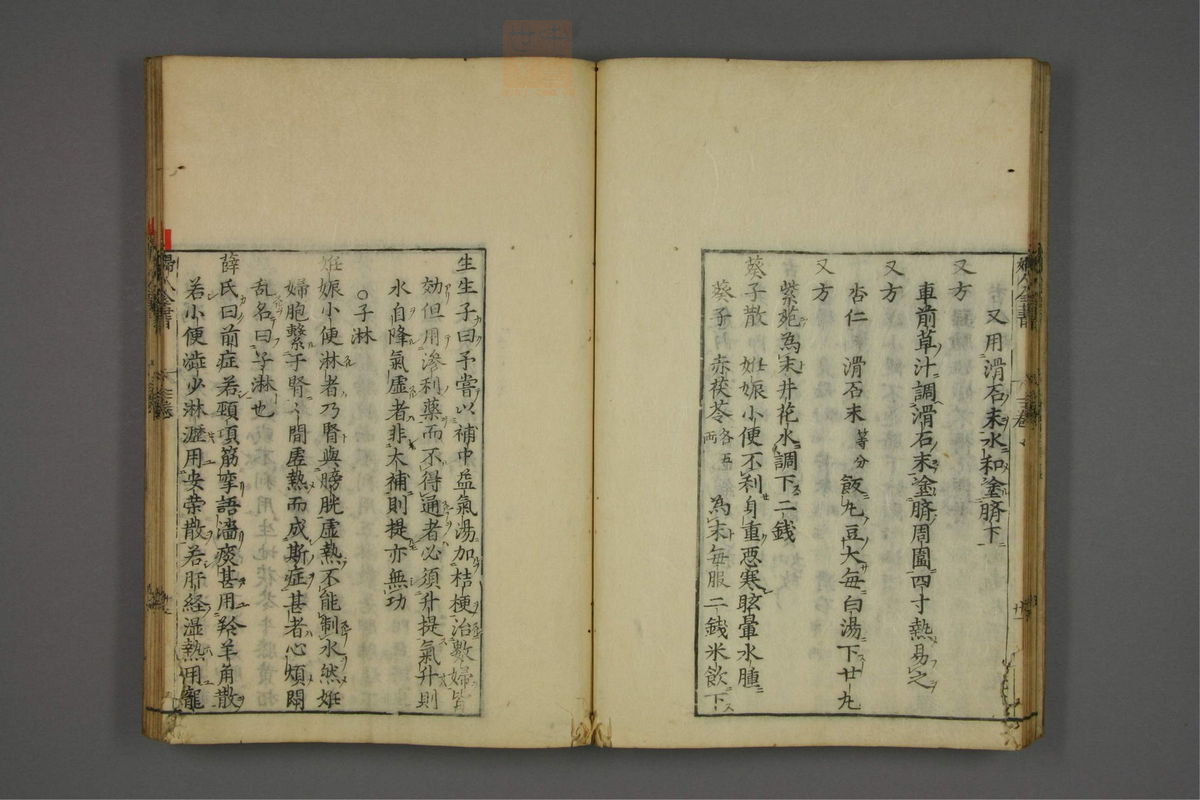 又用滑石末水和塗臍下
又方
車前草汁調滑石末塗臍周圍四寸熱易之
又方
杏仁 滑石末 等分 飯丸豆大每白湯下廿丸
又方
紫苑為末井花水調下二錢
葵子散 妊娠小便不利身重惡寒眩暈水腫
葵子 赤茯苓 各五兩 為末每服二錢米飲下
生生子曰予嘗以補中益氣湯加桔梗治數婦皆
効但用滲利藥而不得通者必須升提氣升則
水自降氣虛者非大補則提亦無功
○子淋
妊娠小便淋者乃腎與膀胱虛熱不能制水然妊
婦胞繫于腎〻間虛熱而成斯症甚者心煩悶
乱名曰子淋也
薛氏曰前症若頸項筋攣語澁痰甚用羚羊角散
若小便澁少淋瀝用安荣散若肝経湿熱用龍
婦人全書